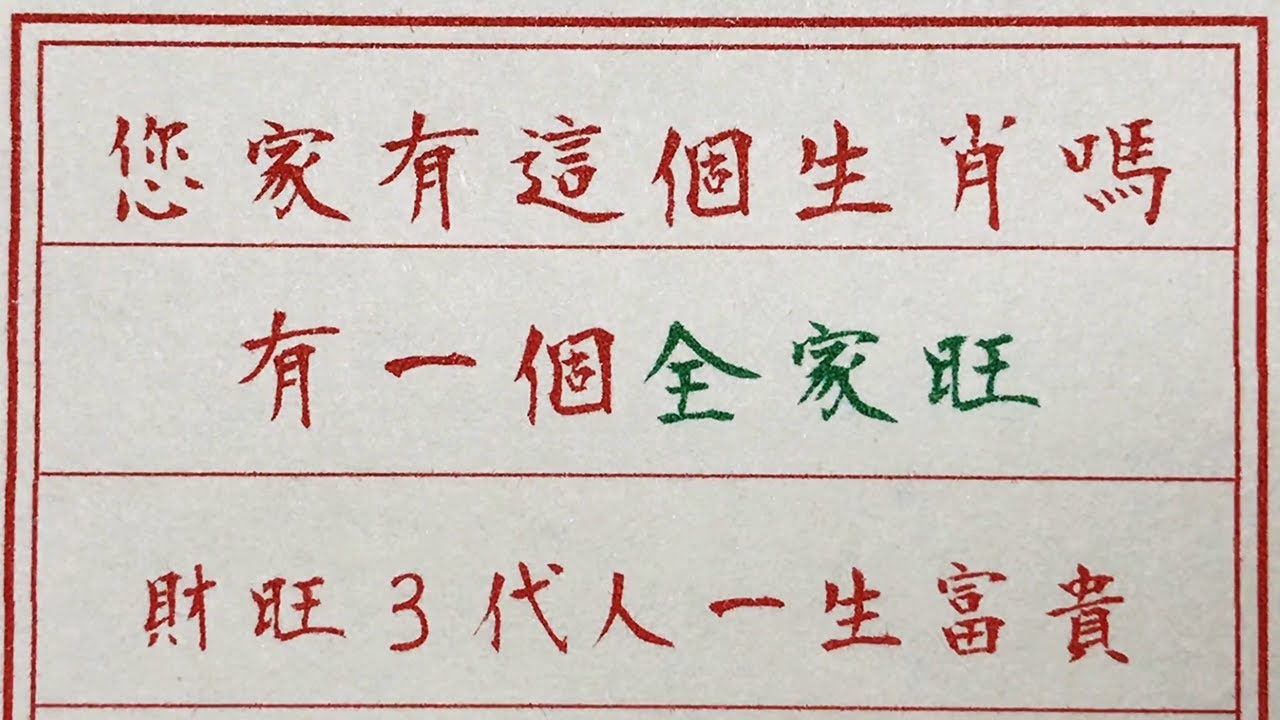 您家有這個生肖嗎
有一個全家旺
財旺3代人一生富貴